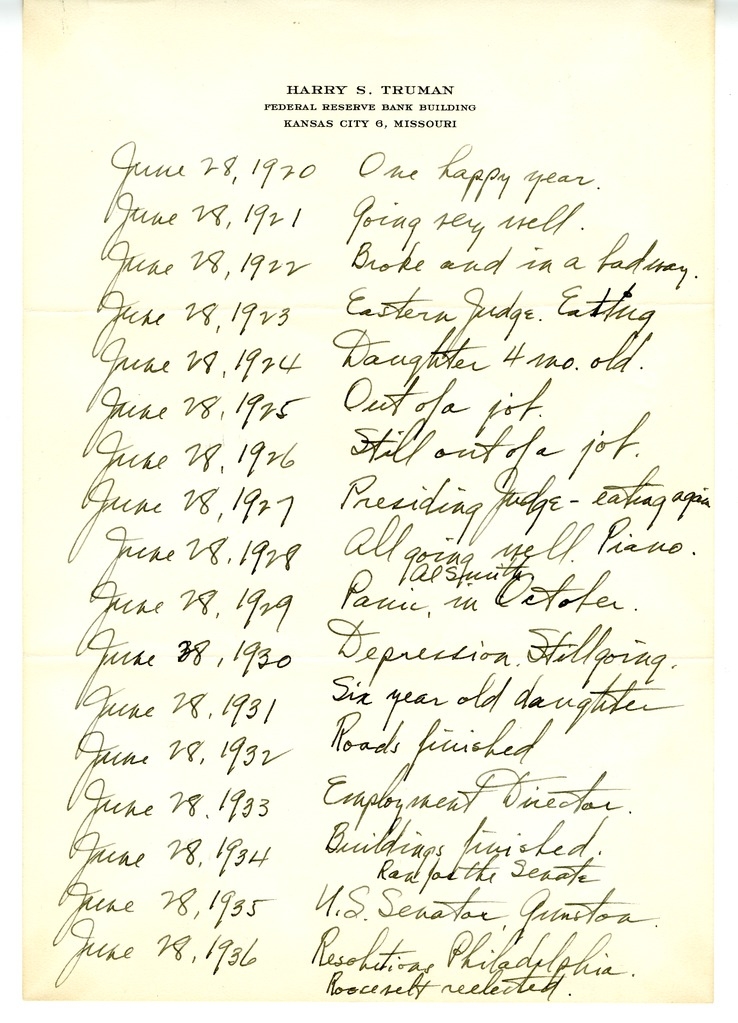 HARRY S. TRUMAN
FEDERAL RESERVE BANK BUILDING
KANSAS CITY 6, MISSOURI
June 28, 1920 One happy year.
June 28, 1921 Going very well.
June 28, 1922 Broke and in a bad way.
June 28, 1923 Eastern Judge. Eating
June 28, 1924 Daughter 4 mo. old.
June 28, 1925 Out of a job.
June 28, 1926 Still out of a job.
June 28, 1927 Presiding Judge - eating again
June 28, 1928 All going well. Piano.
Al Smith
June 28, 1929 Panic, in October.
June 28, 1930 Depression. Still going.
June 28, 1931 Six year old daughter
June 28, 1932 Roads finished
June 28, 1933 Employment Director.
June 28, 1934 Buildings finished.
Ran for the Senate
June 28, 1935 U.S. Senator, Gunston.
June 28, 1936 Resolutions Philadelphia.
Roosevelt reelected.